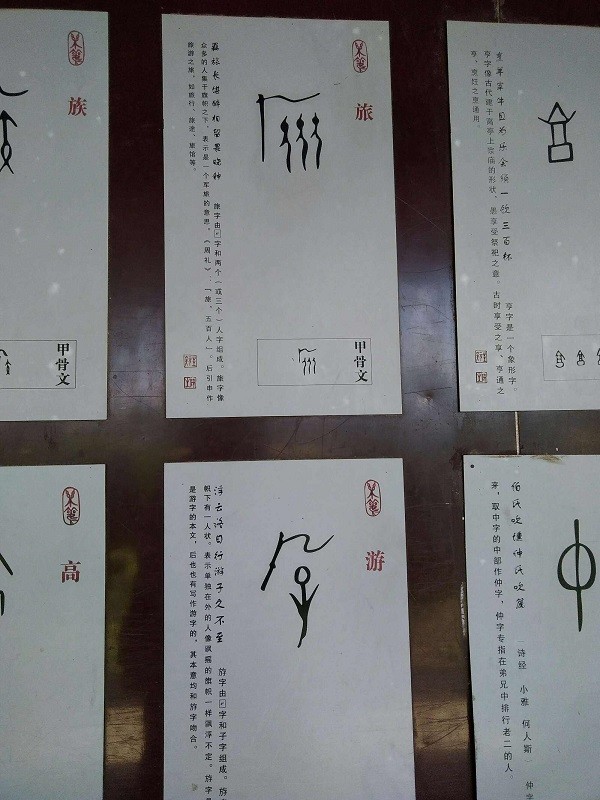 族
甲骨文
旅
旅字由
字和两个(或三个)人字组成。旅字像
众多的人集于旗帜之下,表示是一个军旅的意思。《周礼》:“旅,五百人”。后引申作
旅游之旅,如旅行、旅途、旅馆等。
甲骨文
亨字是一个象形字。
亨字像古代建于高亭上宗庙的形状,是享受祭祀之意。古时享受之享、亨通之
亨、烹饪之烹通用。
高
游
浮云终日行游子久不至
斿字由
字和子字组成。斿字
帜下有一人状。表示单独在外的人像飘摇的旗帜一样飘浮不定。斿字
是游字的本文,后也也有写作游字的,其本意均和斿字吻合。
伯氏吹埙仲氏吹篪
诗经 小雅 何人斯
仲字
来,取中字的中部作仲字,仲字专指在弟兄中排行老二的人。